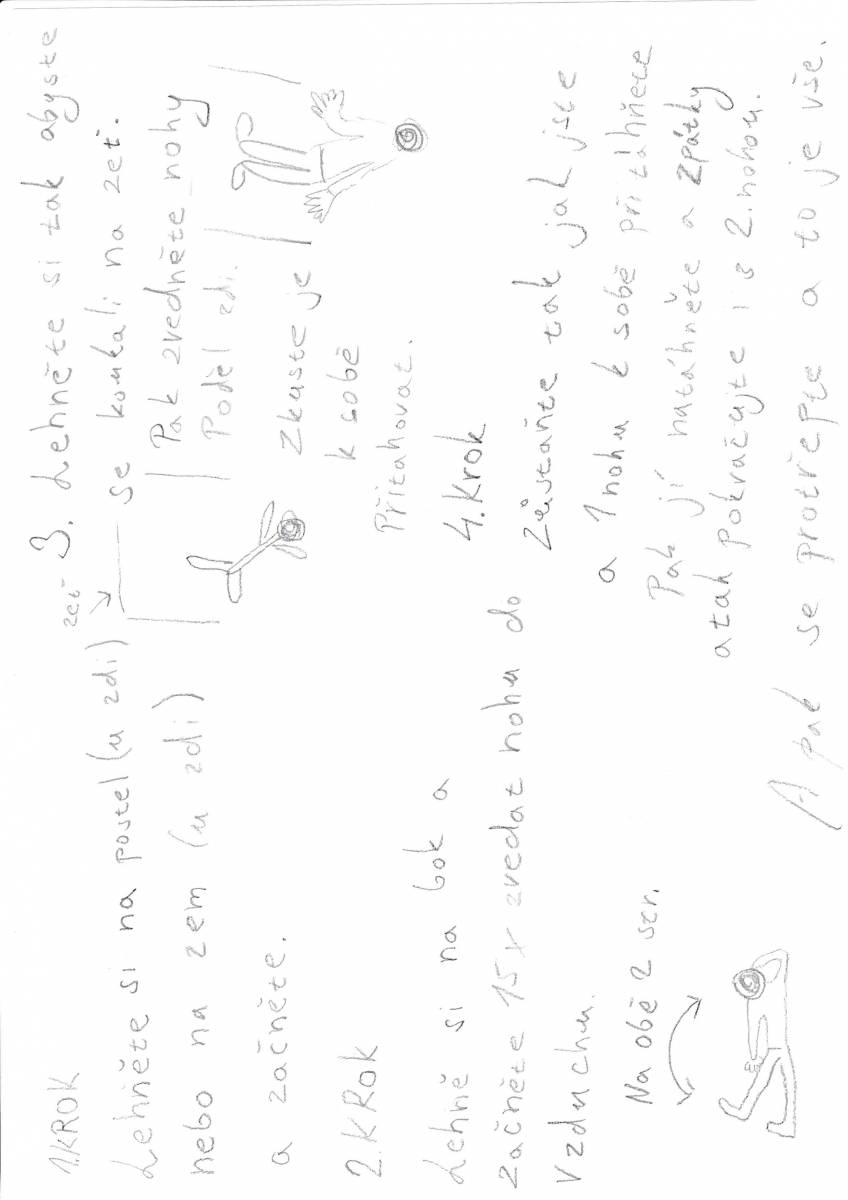 1.KROK
Lehněte si na postel (u zdi)
nebo na zem (u zdi)
a začněte.
2.KROK
Lehně si na bok a
začněte 15x zvedat nohu do
vzduchu.
Na obě 2 str.
zeť
3. Lehněte si tak abyste
se koukali na zeť.
Pak zvedněte nohy
Poděl zdi.
Zkuste je
k sobě
Přitahovat.
4.Krok
Zůstaňte tak jak jste
a 1 nohu k sobě přitáhnete
Pak jí natáhněte a zpátky
a tak pokračujte i s 2.nohou.
A pak se protřepte a to je vše.